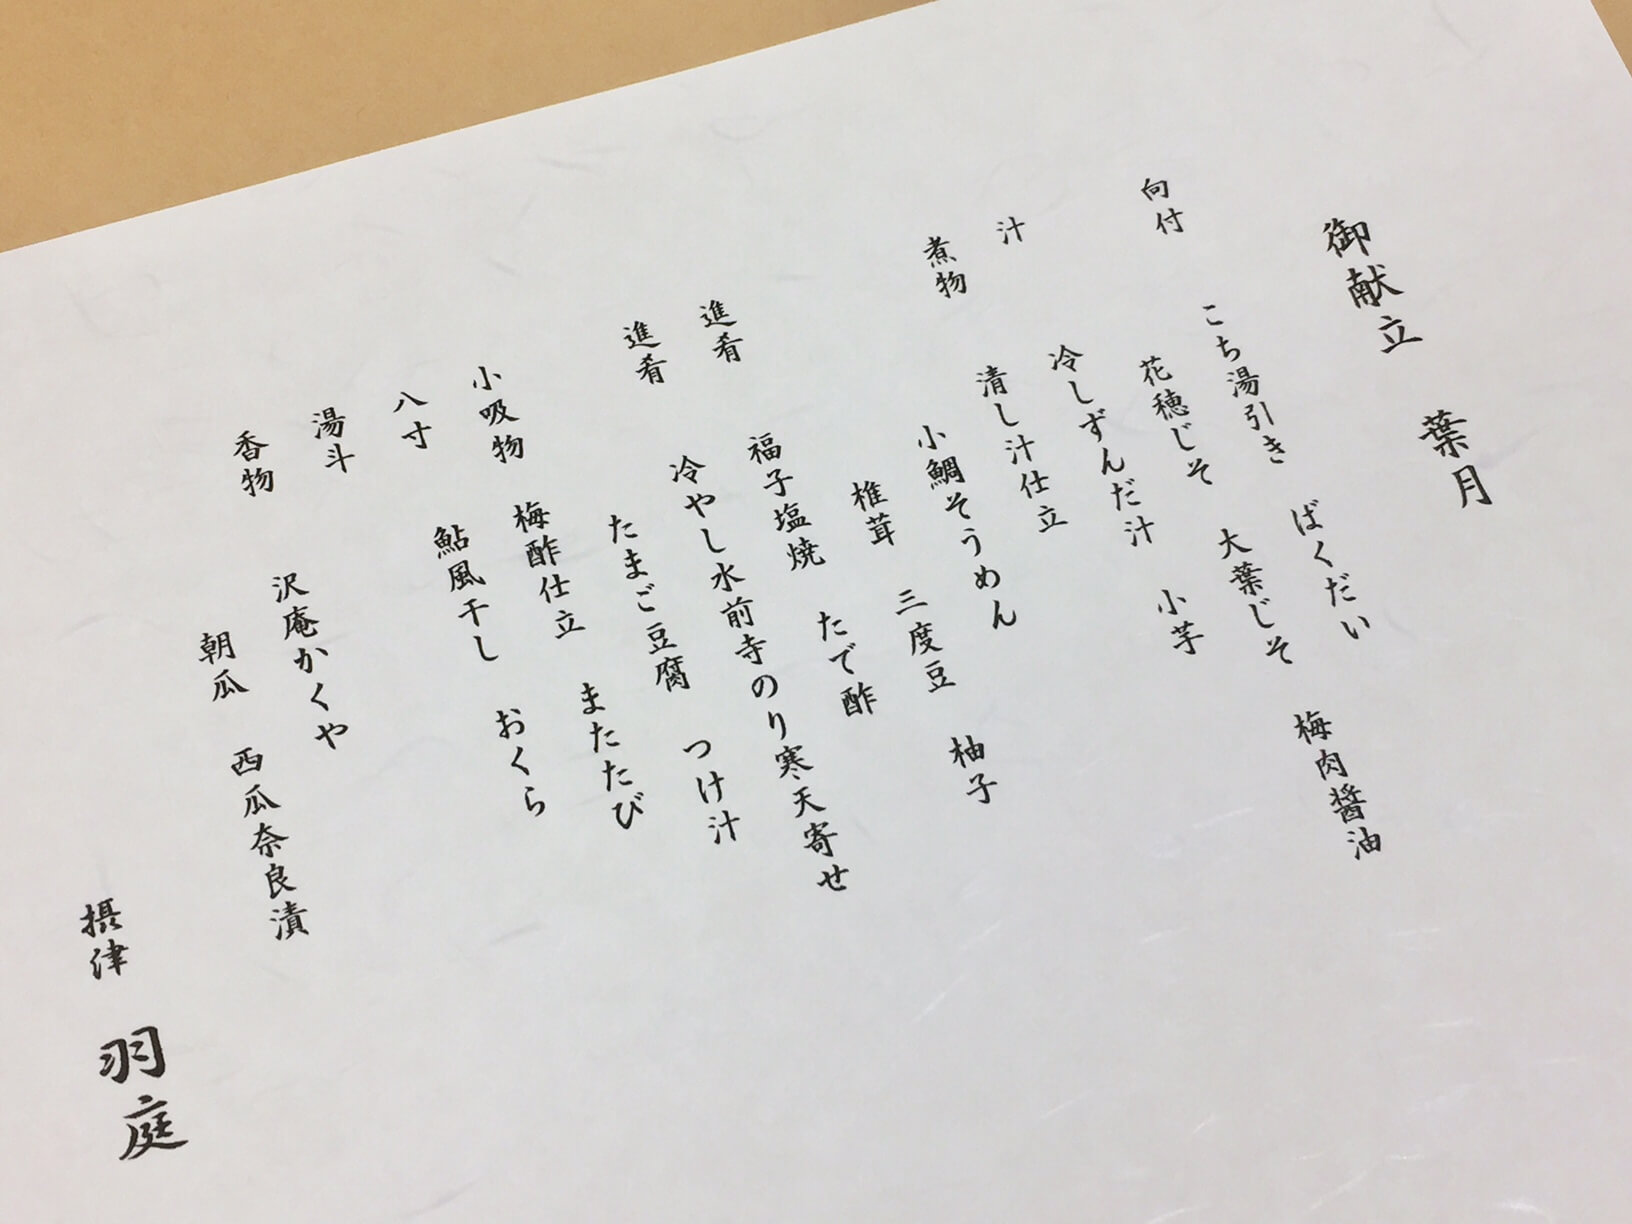 御献立　葉月
向付　こち湯引き　ばくだい
花穂じそ　大葉じそ　梅肉醤油
汁　冷しずんだ汁　小芋
煮物　清し汁仕立
小鯛そうめん
椎茸　三度豆　柚子
進肴　福子塩焼　たで酢
進肴　冷やし水前寺のり寒天寄せ
たまご豆腐　つけ汁
小吸物　梅酢仕立　またたび
八寸　鮎風干し　おくら
湯斗
香物　沢庵かくや
朝瓜　西瓜奈良漬
摂津　羽庭